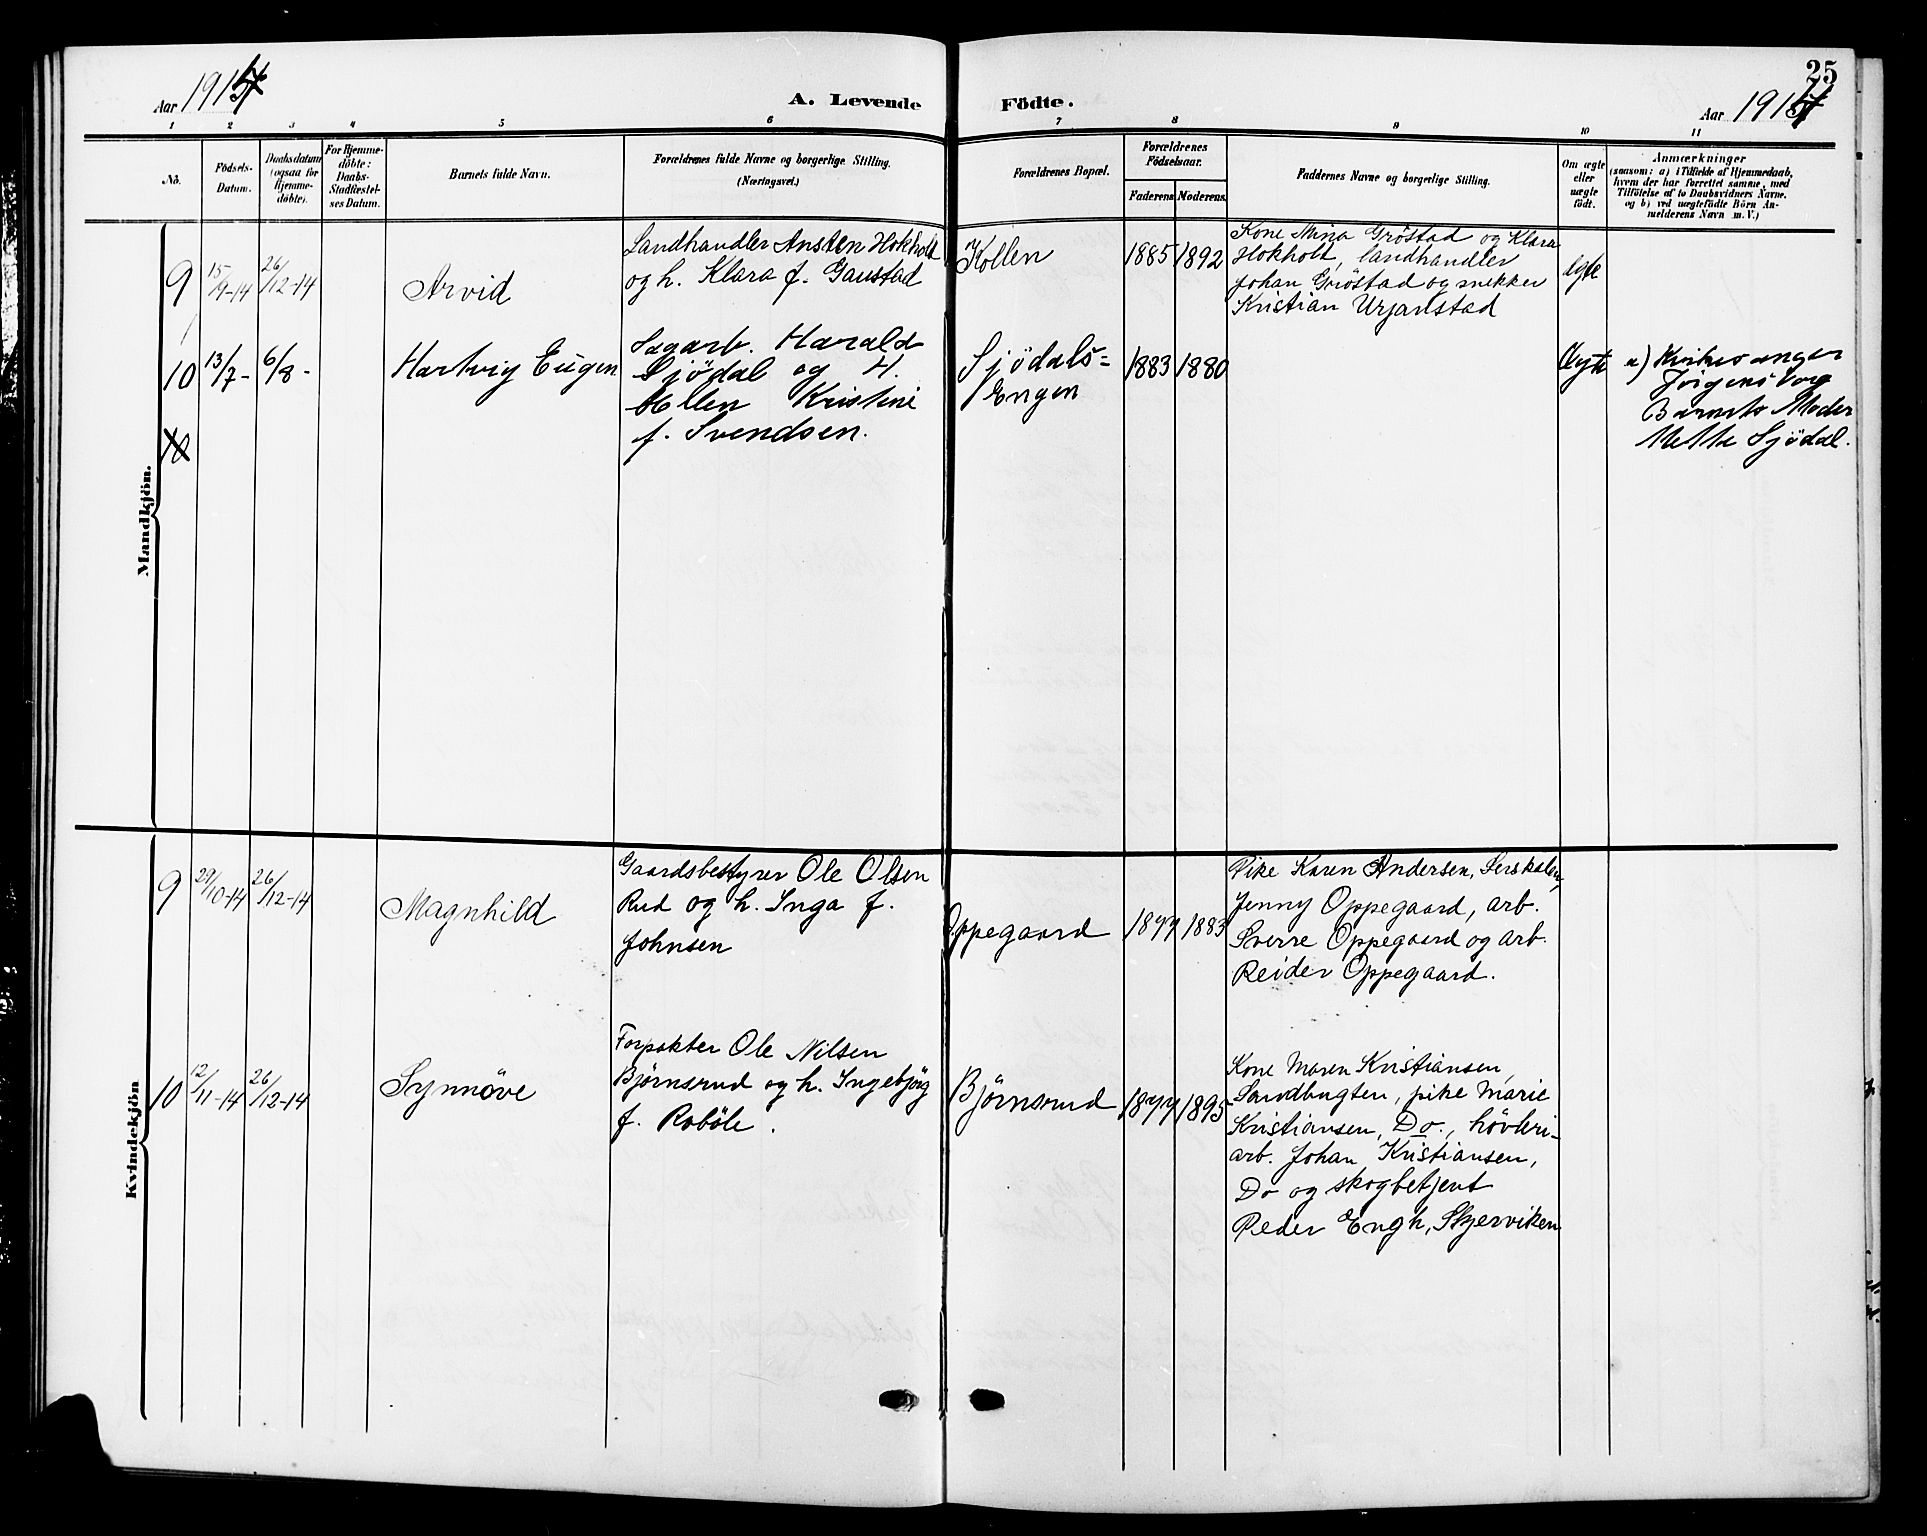 25
Aar 1914
A. Levende Födte.
Aar 1914
1 2 3 4 5 6 7 8 9 10 11
No.
Födsels-
Datum.
Daabsdatum
(ogsaa for
Hjemme-
döbte).
For Hjemme-
döbte:
Daabs-
Stadfæstel-
ses Datum.
Barnets fulde Navn.
Forældrenes fulde Navne og borgerlige Stilling.
(Næringsvei.)
Forældrenes Bopæl.
Forældrenes
Födselsaar.
Faderens
Moderens.
Faddernes Navne og borgerlige Stilling.
Om ægte
eller
uægte
födt.
Anmærkninger
(saasom: a) i Tilfælde af Hjemmedaab,
hvem der har forrettet samme, med
Tilföielse af to Daabsvidners Navne,
og b) ved uægtefödte Börn An-
melderens Navn m. V.)
Mandkjön.
9
15/9-14
26/12-14
Arvid
Landhandler Ansten Hokholt
og h. Klara f. Gaustad
Kollen
1885
1892
Kone Mina Gröstad og Klara
Hokholt, landhandler
Johan Gröstad og snekker
Kristian Urjanstad
ægte
10
13/7-
6/8-
Hartvig Eugen
Sagarb. Harald
Sjödal og H.
Ellen Kristine
f. Svendsen.
Sjödals-
Engen
1883
1880
Ægte
a)
Barnets Moder
Mette Sjödal.
10
Kvindekjön
9
29/10-14
26/12-14
Magnhild
Gaardsbestyrer Ole Olsen
Rud og h. Inga f.
Johnsen
Oppegaard
1877
1883
Pike Karen Andersen,
Jenny Oppegaard, arb.
Sverre Oppegaard og arb.
Reider Oppegaard.
10
12/11-14
26/12-14
Synnöve
Forpakter Ole Nilsen
Björnsrud og h. Ingebjörg
f. Roböle.
Björnsrud
1877
1895
Kone Maren Kristiansen,
Sandbugten, pike Marie
Kristiansen, Do., hövleri-
arb. Johan Kristiansen,
Do og skogbetjent
Peder Engh, Skjerviken